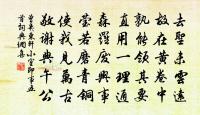 去聖未雲遠
放在黃卷中
孰能領其要
直用一理通
森羅廢興事
瑩若磨青銅
使我見萬古
敬謝典午公
曾幾東軒小室即事五
首詞典網書